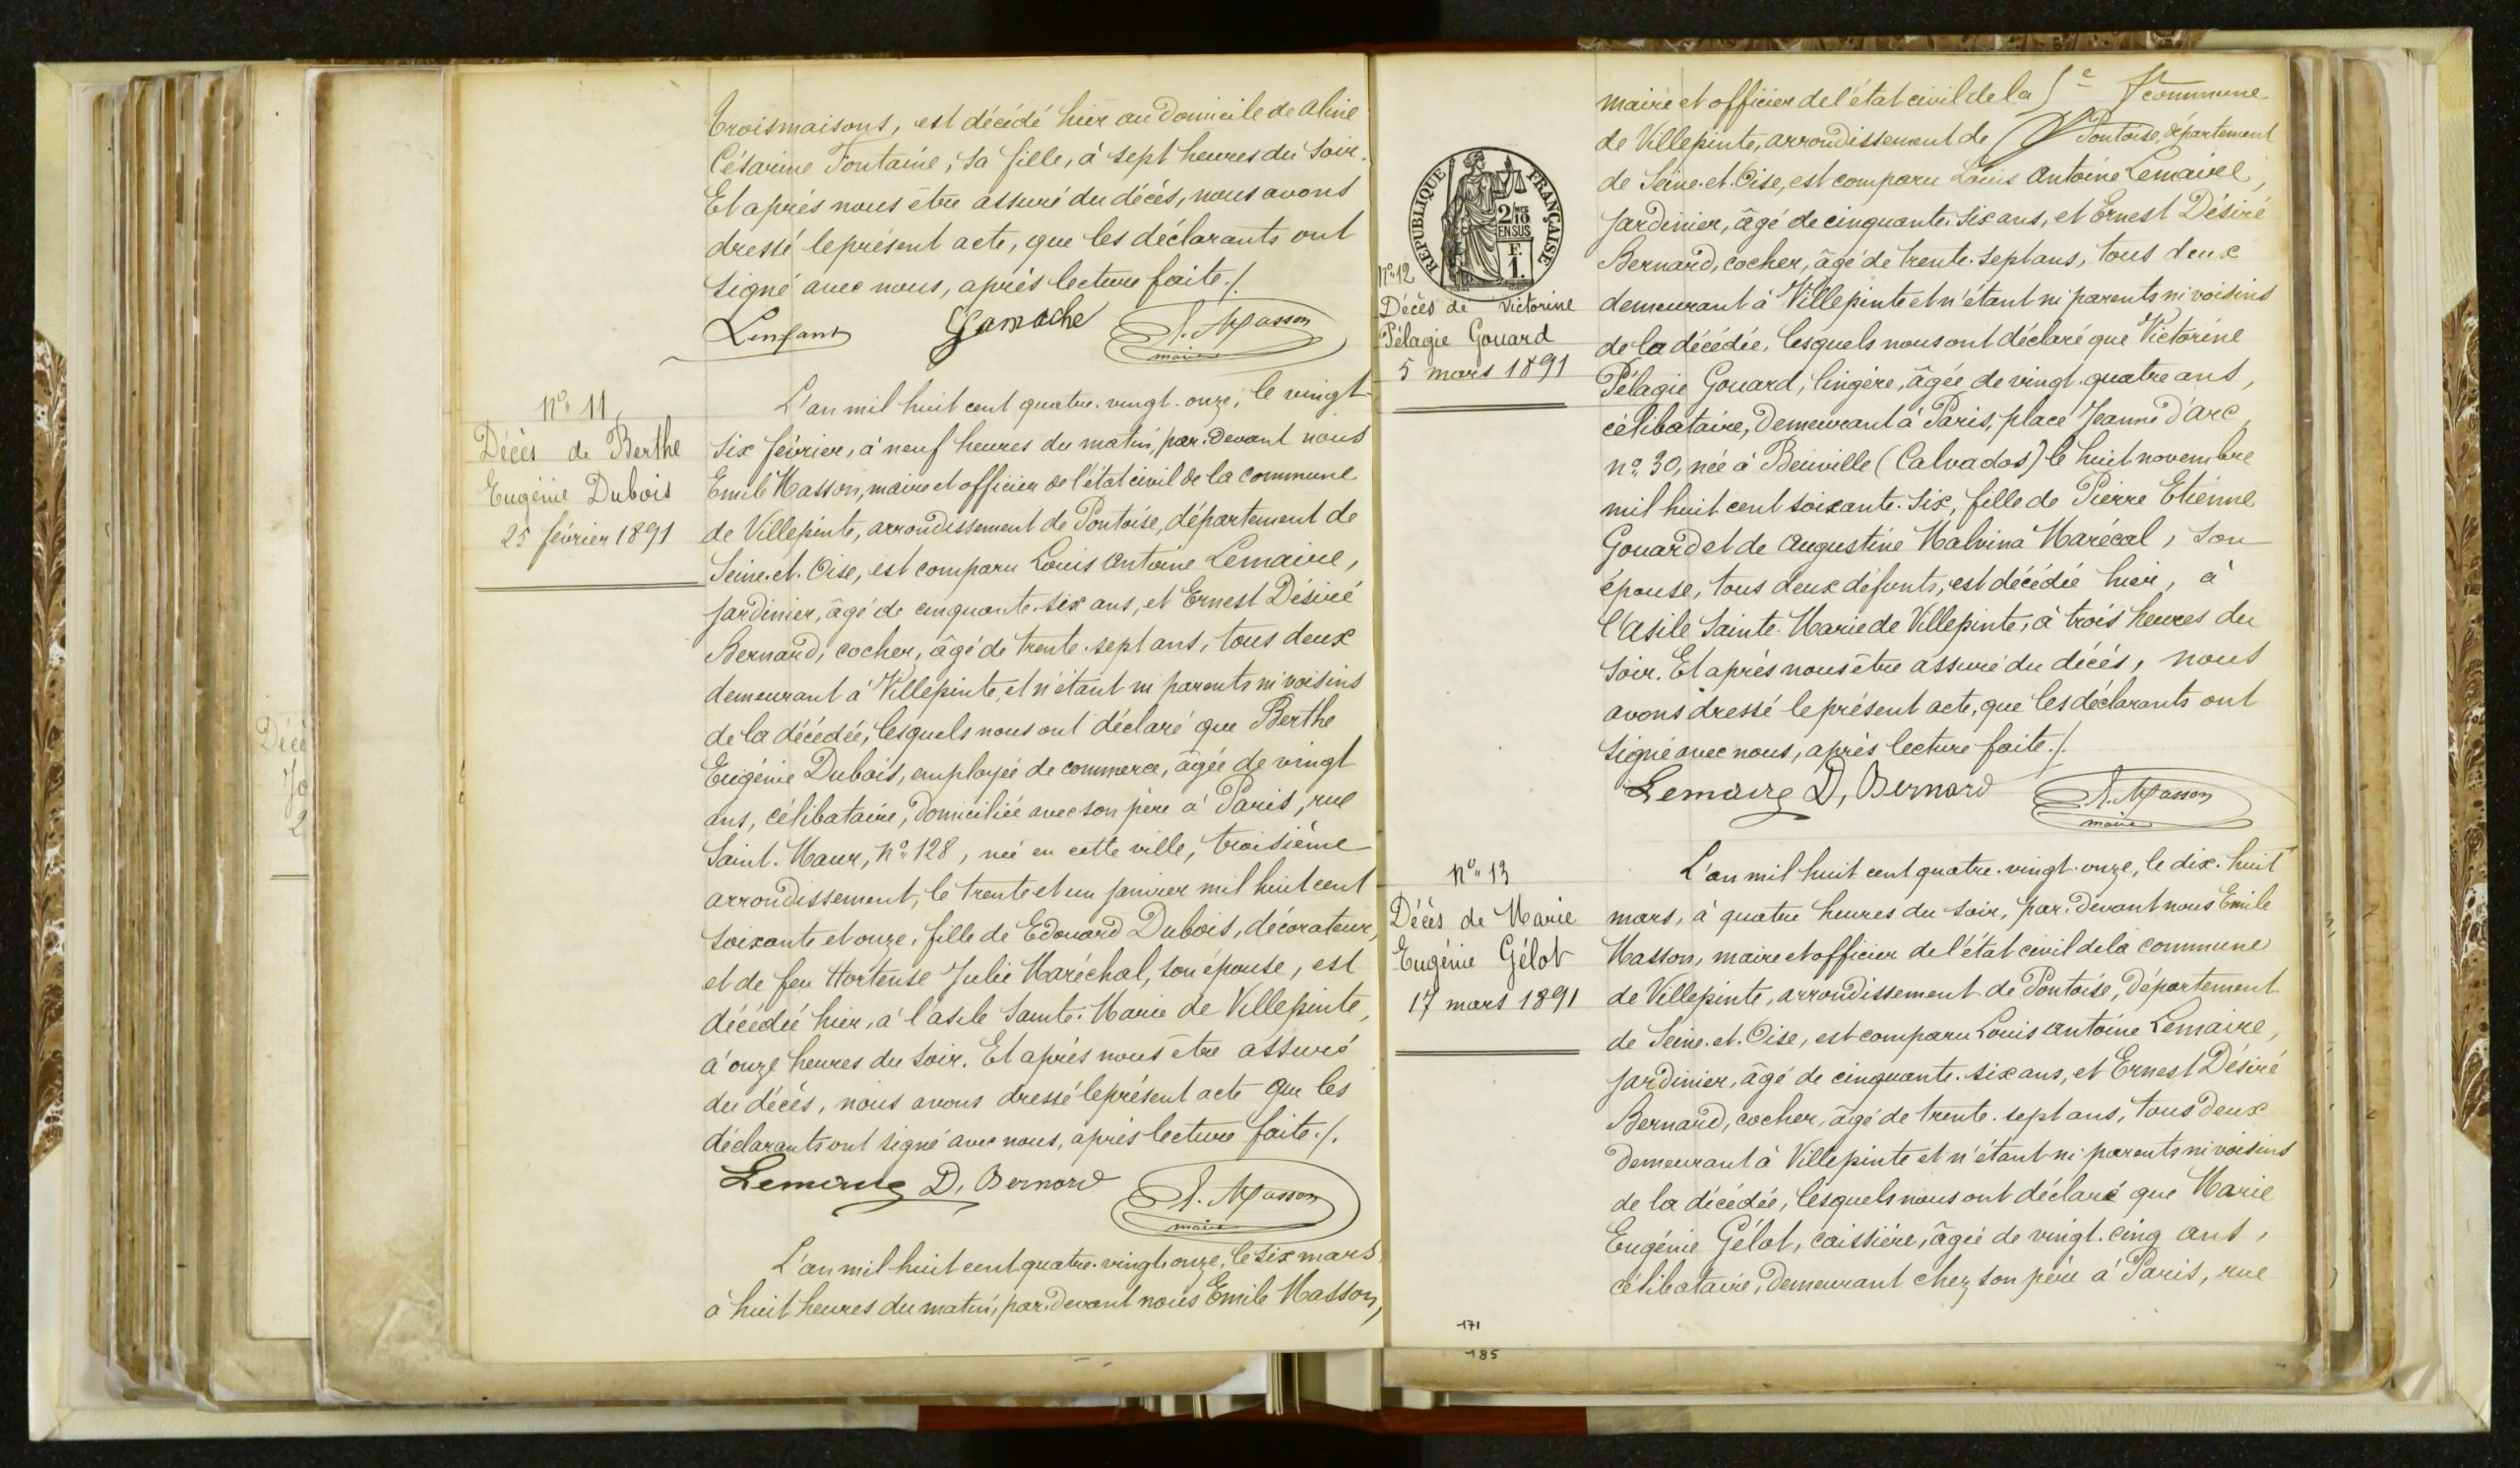 Troismaisons, est décédé hier au domicile de Aline
Césarine Fontaine, sa fille, à sept heures du soir.
Et après nous être assuré du décès, nous avons
dressé le présent acte, que les déclarants ont
signé avec nous, après lecture faite ./.
Lenfant Gamache E. Masson
maire
N° 11
Décès de Berthe
Eugénie Dubois
25 février 1891
L'an mil huit cent quatre-vingt-onze, le vingt-
six février, à neuf heures du matin, par-devant nous
Emile Masson, maire et officier de l'état civil de la commune
de Villepinte, arrondissement de Pontoise, département de
Seine-et-Oise, est comparu Louis Antoine Lemaire,
jardinier, âgé de cinquante-six ans, et Ernest Désiré
Bernard, cocher, âgé de trente-sept ans, tous deux
demeurant à Villepinte, et n'étant ni parents ni voisins
de la décédée, lesquels nous ont déclaré que Berthe
Eugénie Dubois, employée de commerce, âgée de vingt
ans, célibataire, domiciliée avec son père à Paris, rue
Saint-Maur, N° 128, née en cette ville, troisième
arrondissement, le trente et un janvier mil huit cent
soixante et onze, fille de Edouard Dubois, décorateur,
et de feu Hortense Julie Maréchal, son épouse, est
décédée hier, à l'asile Sainte-Marie de Villepinte,
à onze heures du soir. Et après nous être assuré
du décès, nous avons dressé le présent acte que les
déclarants ont signé avec nous, après lecture faite ./.
Lemaire D, Bernard E. Masson
maire
L'an mil huit cent quatre-vingt onze, le six mars,
à huit heures du matin, par-devant nous Emile Masson,
Décè
Jo
2
REPUBLIQUE FRANÇAISE
2/10 MES
EN SUS
F.
1.
N° 12
Décès de Victorine
Pélagie Gouard
5 mars 1891
maire et officier de l'état civil de la commune
de Villepinte, arrondissement de Pontoise, département
de Seine-et-Oise, est comparu Louis Antoine Lemaire,
jardinier, âgé de cinquante-six ans, et Ernest Désiré
Bernard, cocher, âgé de trente-sept ans, tous deux
demeurant à Villepinte et n'étant ni parents ni voisins
de la décédée, lesquels nous ont déclaré que Victorine
Pélagie Gouard, lingère, âgée de vingt-quatre ans,
célibataire, demeurant à Paris, place Jeanne d'arc,
n° 30, née à Beuville (Calvados) le huit novembre
mil huit cent soixante-six, fille de Pierre Etienne
Gouard et de Augustine Malvina Marécal, son
épouse, tous deux défunts, est décédée hier, à
l'Asile Sainte-Marie de Villepinte, à trois heures du
soir. Et après nous être assuré du décès, nous
avons dressé le présent acte, que les déclarants ont
signé avec nous, après lecture faite ./.
Lemaire D, Bernard E. Masson
maire
N° 13
Décès de Marie
Eugénie Gélot
17 mars 1891
L'an mil huit cent quatre-vingt-onze, le dix-huit
mars, à quatre heures du soir, par-devant nous Emile
Masson, maire et officier de l'état civil de la commune
de Villepinte, arrondissement de Pontoise, département
de Seine-et-Oise, est comparu Louis Antoine Lemaire,
jardinier, âgé de cinquante-six ans, et Ernest Désiré
Bernard, cocher, âgé de trente-sept ans, tous deux
demeurant à Villepinte et n'étant ni parents ni voisins
de la décédée, lesquels nous ont déclaré que Marie
Eugénie Gélot, caissière, âgée de vingt-cinq ans,
célibataire, demeurant chez son père à Paris, rue
171
185